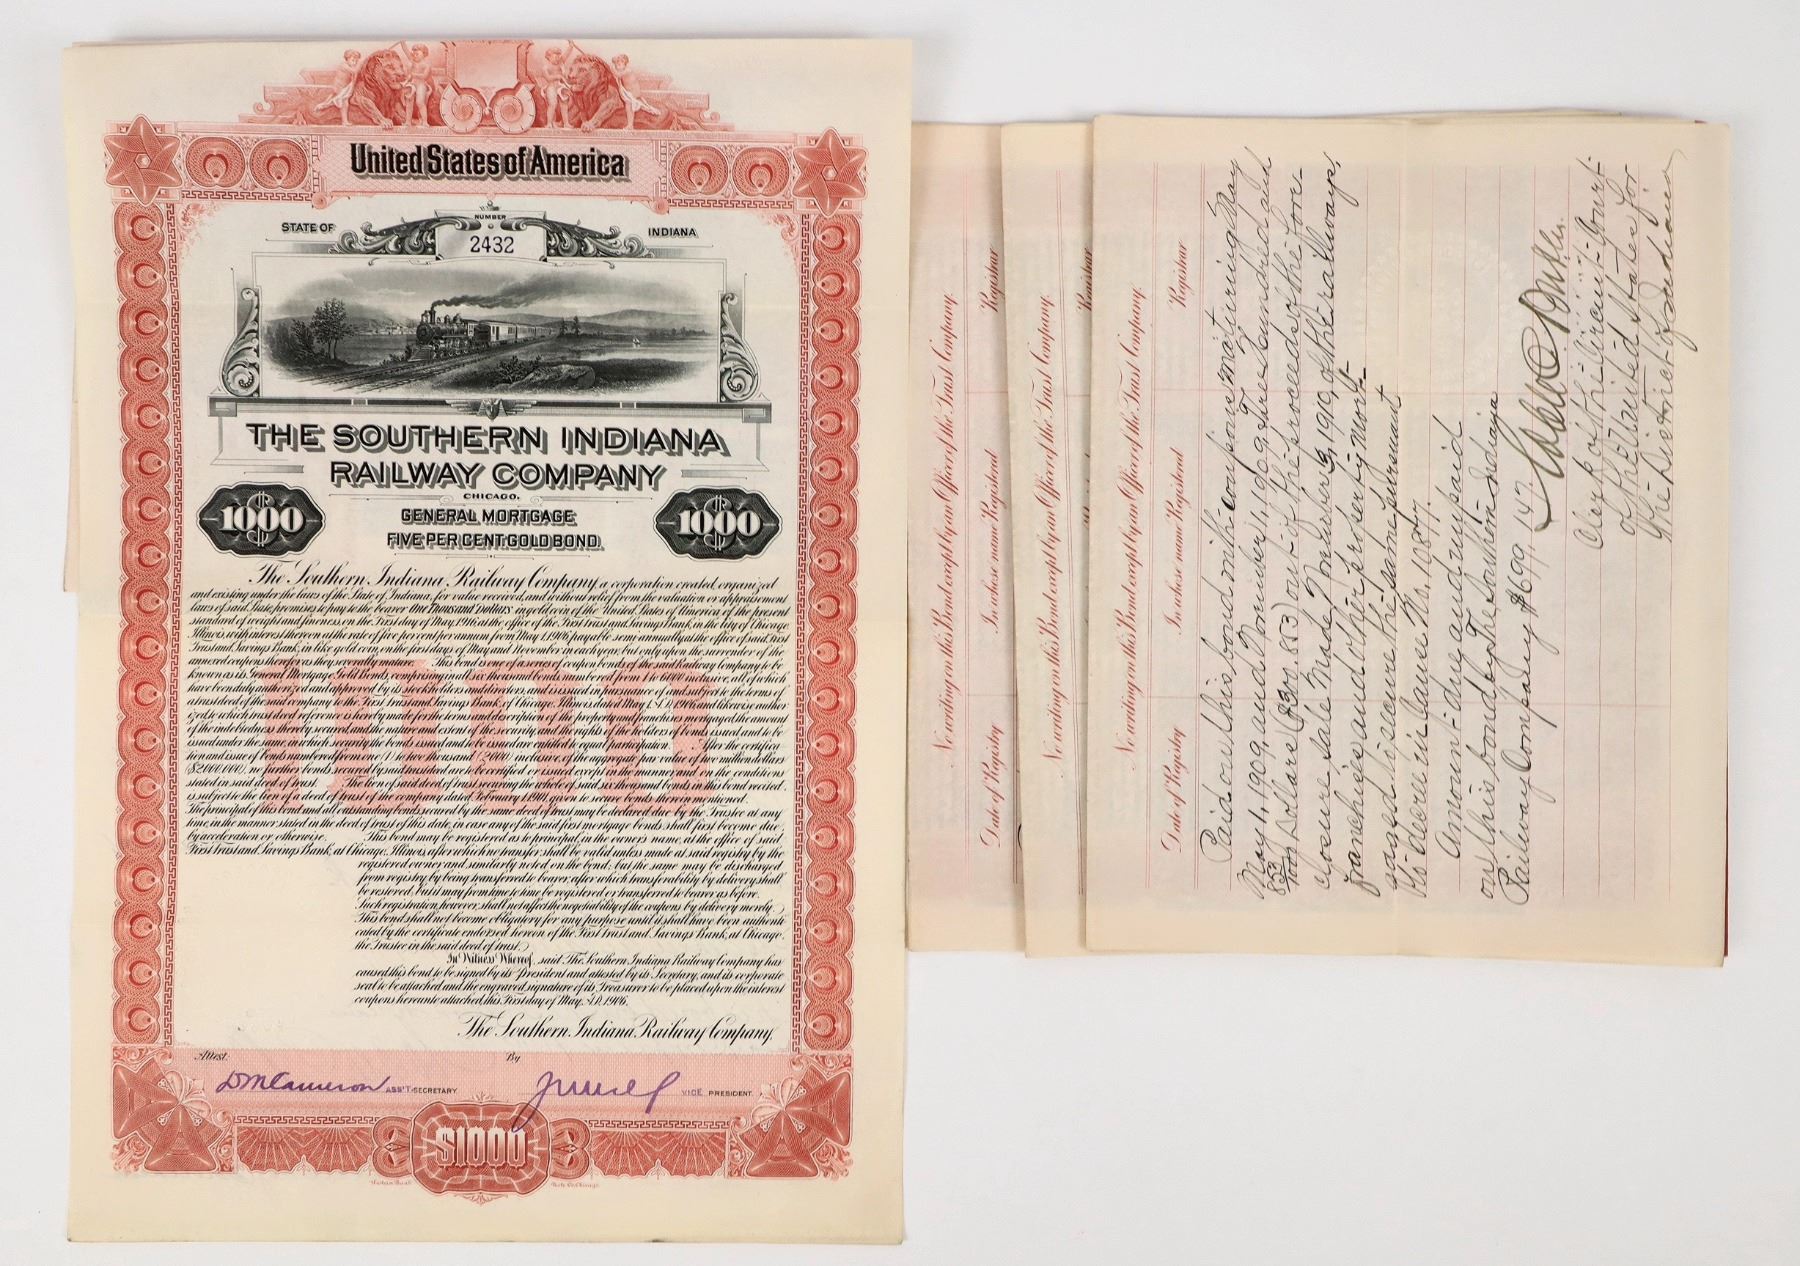 United States of America
STATE OF
NUMBER
2432
INDIANA
THE SOUTHERN INDIANA
RAILWAY COMPANY
CHICAGO.
GENERAL MORTGAGE
FIVE PER CENT. GOLD BOND.
$1000
$1000
The Southern Indiana Railway Company, a corporation created, organized
and existing under the laws of the State of Indiana, for value received, and without relief from the valuation or appraisement
laws of said State, promises to pay to the bearer One Thousand Dollars in gold coin of the United States of America, of the present
standard of weight and fineness, on the First day of May, 1916 at the office of the First Trust and Savings Bank, in the City of Chicago
Illinois, with interest thereon at the rate of five per cent per annum from May 1, 1906, payable semi-annually at the office of said First
Trust and Savings Bank, in like gold coin, on the first days of May and November in each year, but only upon the surrender of the
annexed coupons therefor as they severally mature. This bond is one of a series of coupon bonds of the said Railway Company to be
known as its General Mortgage Gold Bonds, comprising in all six thousand bonds, numbered from 1 to 6000 inclusive, all of which
have been duly authorized and approved by its stockholders and directors, and is issued in pursuance of and subject to the terms of
a trust deed of the said company to the First Trust and Savings Bank, of Chicago, Illinois, dated May 1, A.D. 1906 and likewise author
ized to which trust deed reference is hereby made for the terms and description of the property and franchises mortgaged, the amount
of the indebtedness thereby secured, and the nature and extent of the security, and the rights of the holders of bonds issued and to be
issued under the same, in which security the bonds issued and to be issued are entitled to equal participation. After the certifica-
tion and issue of bonds numbered from one (1) to two thousand (2000) inclusive, of the aggregate par value of two million dollars
($2,000,000), no further bonds secured by said trust deed are to be certified or issued except in the manner and on the conditions
stated in said deed of trust. The lien of said deed of trust securing the whole of said six thousand bonds in this bond recited,
is subject to the lien of a deed of trust of the company dated February 1, 1901, given to secure bonds therein mentioned.
The principal of this bond and all outstanding bonds secured by the same deed of trust may be declared due by the Trustee at any
time, in the manner stated in the deed of trust of this date, in case any of the said first mortgage bonds shall first become due
by acceleration or otherwise. This bond may be registered as to principal, in the owner's name, at the office of said
First Trust and Savings Bank, at Chicago, Illinois, after which no transfer shall be valid unless made at said registry by the
registered owner and similarly noted on the bond, but the same may be discharged
from registry, by being transferred to bearer, after which transferability by delivery shall
be restored. But it may from time to time be registered or transferred to bearer as before.
Such registration, however, shall not affect the negotiability of the coupons by delivery merely.
This bond shall not become obligatory for any purpose until it shall have been authenti-
cated by the certificate endorsed hereon of the First Trust and Savings Bank, at Chicago,
the Trustee in the said deed of trust.
In Witness Whereof, said The Southern Indiana Railway Company has
caused this bond to be signed by its President and attested by its Secretary, and its corporate
seal to be attached and the engraved signature of its Treasurer to be placed upon the interest
coupons hereunto attached, this First day of May, A.D. 1906.
The Southern Indiana Railway Company,
Attest:
By
D M Cameron
ASS'T SECRETARY
VICE PRESIDENT.
$1000
No writing on this Bond except by an Officer of the Trust Company.
Date of Registry
In whose name Registered
Registrar
No writing on this Bond except by an Officer of the Trust Company.
Registrar
No writing on this Bond except by an Officer of the Trust Company.
Date of Registry
In whose name Registered
Registrar
Paid on this bond with coupons maturing May
May 1, 1909, and November 1, 1909, Three hundred and
853/1000 Dollars ($300.853) out of the proceeds of the fore-
closure sale made November 3, 1910, of the railways,
franchises and other property mort-
gaged to secure the same pursuant
to decree in Cause No. 10877.
Amount due and unpaid
on this bond by The Southern Indiana
Railway Company $699.147
Clerk of the Circuit Court
of the United States for
the District of Indiana